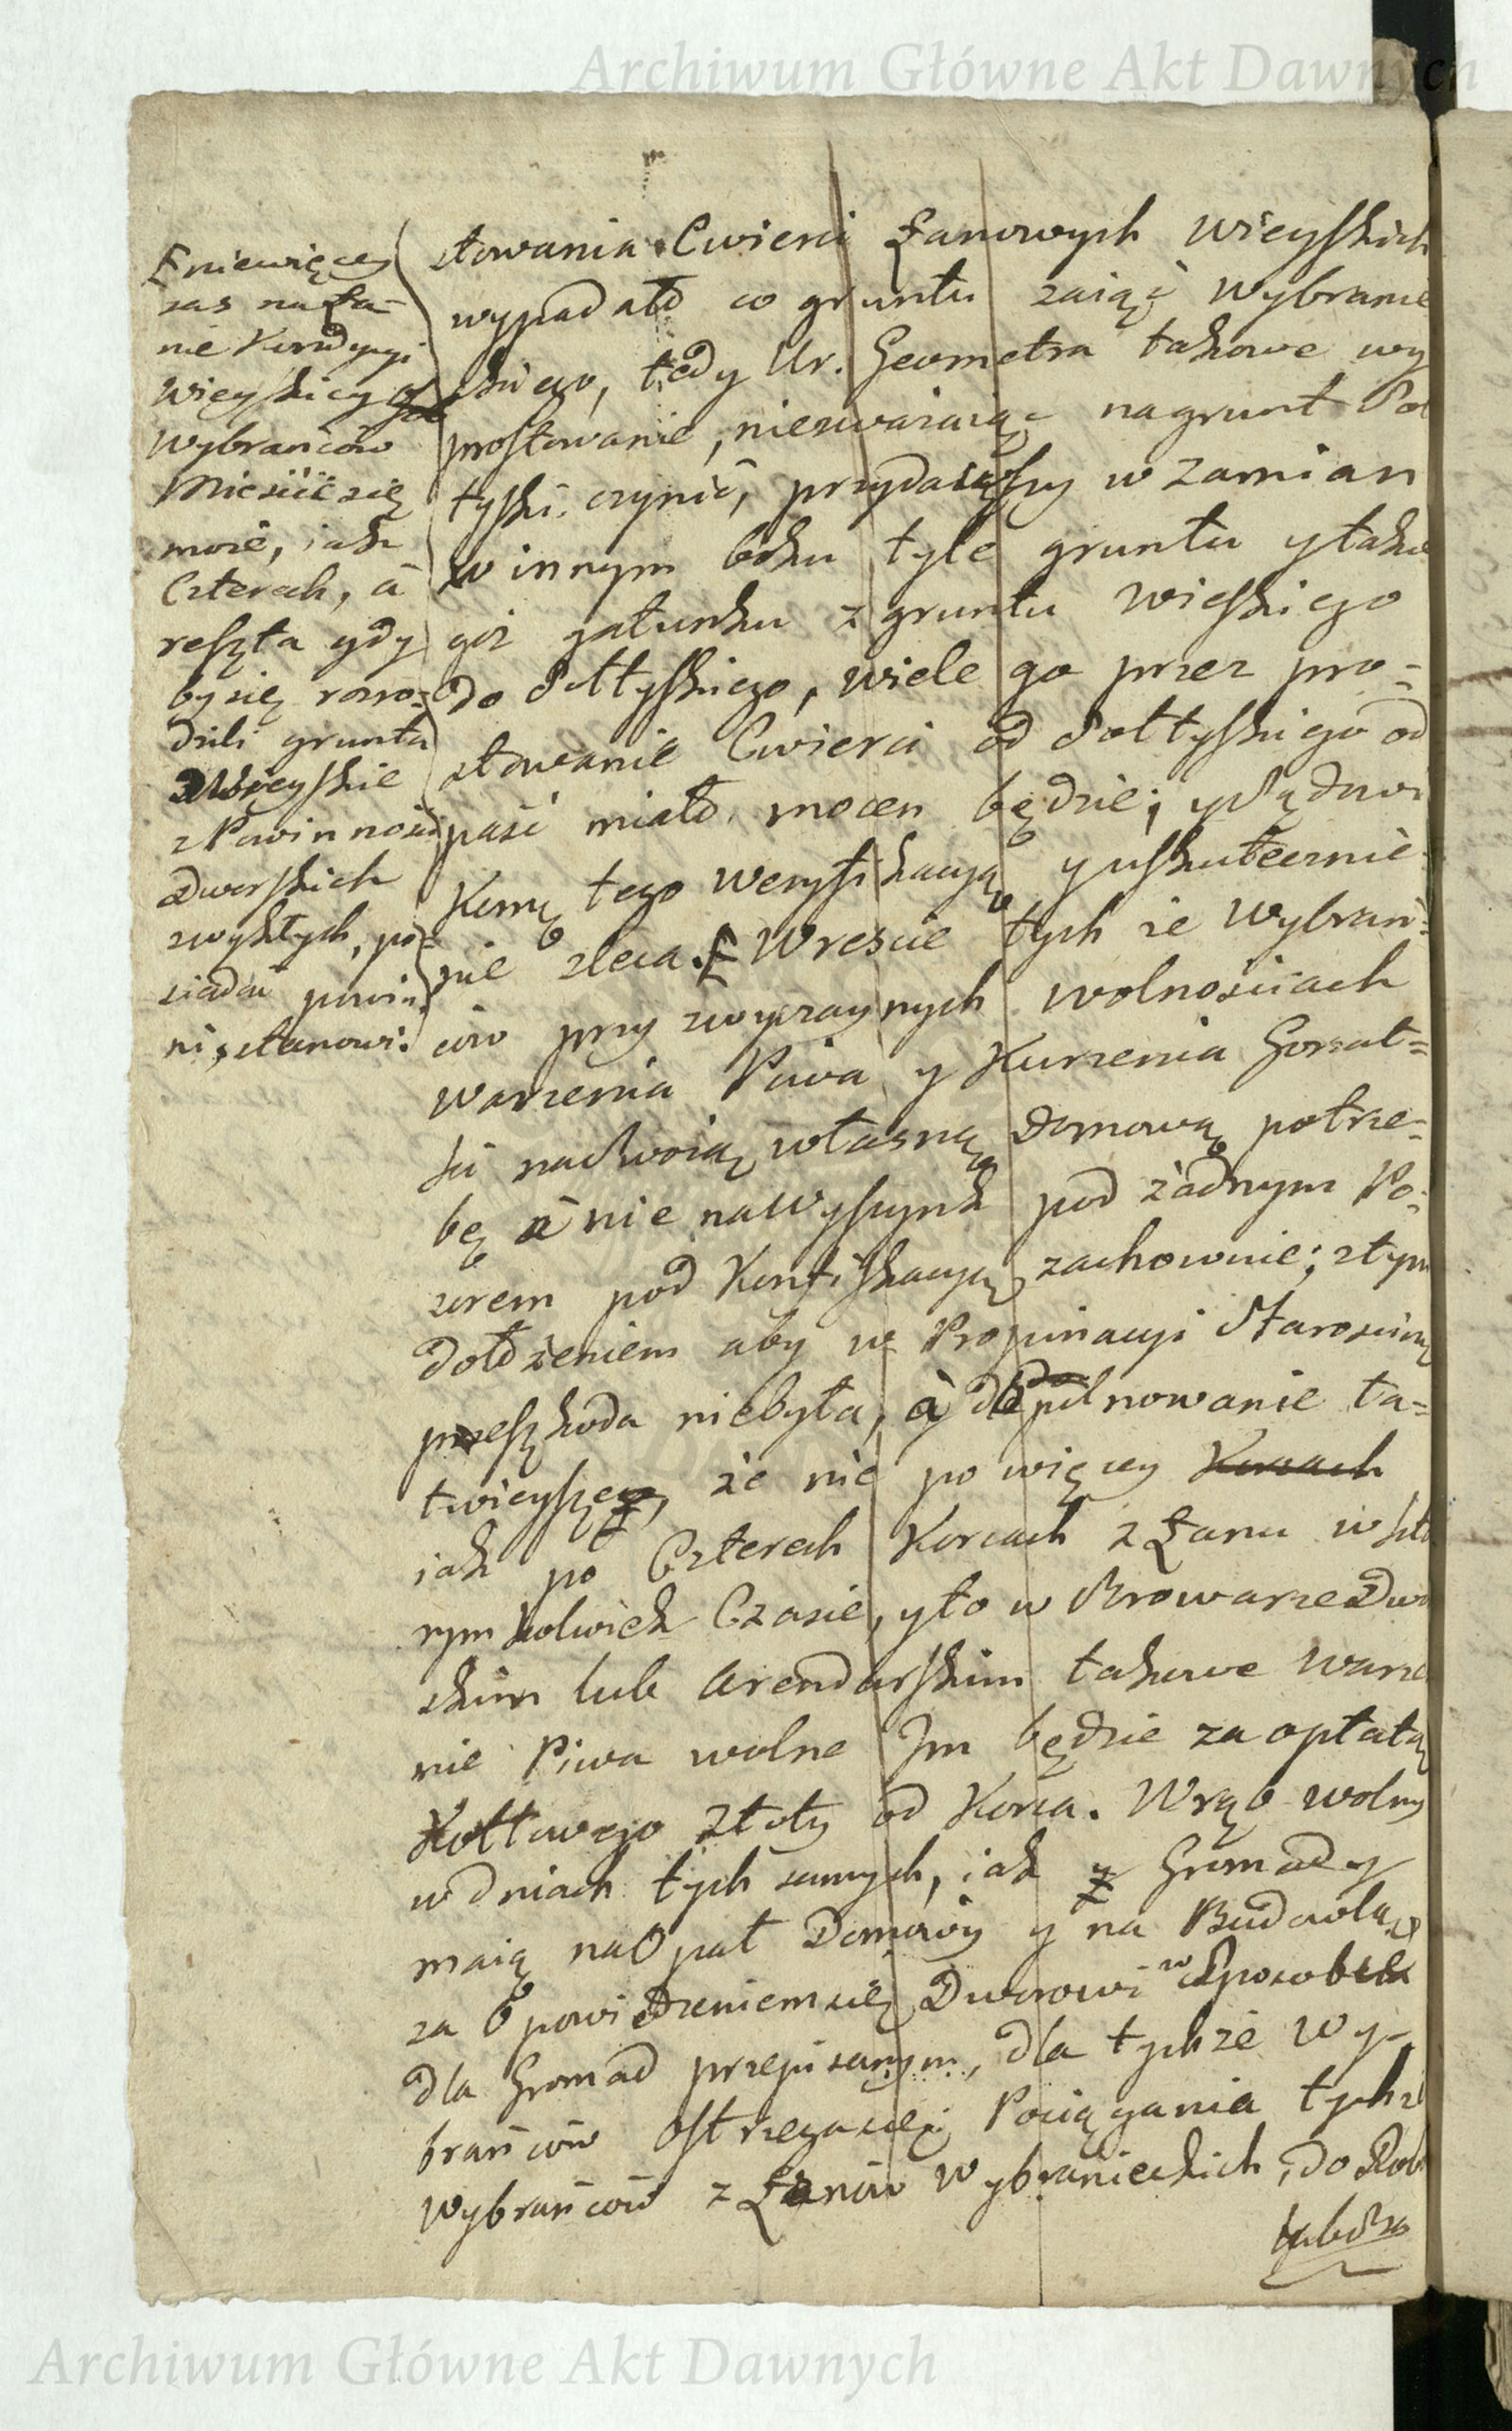 Archiwum Główne Akt Dawnych
Ł niewięcey
zas na Ła-
nie Kondycyi
wieyskiey
Wybrańców
Mieścić się
może, iak
Czterech, à
reszta gdy
by się rozro=
dzili grunta
Wieyskie
z Powinności
Dworskich
zwykłych, po=
siadać powin
ni, stanowi.
stowania Cwierci Łanowych Wieyskich
wypadało co gruntu zaiąć Wybranie
ckiego, tedy Ur. Geometra takowe wy
prostowanie, niezwaźaiąc na grunt Soł
tyski czynić, przydaiąwszy w zamian
w innym boku tyle gruntu y take
goż gatunku z gruntu Wieskiego
do Sołtyskiego, wiele go przez pro=
stowanie Cwierci od Sołtyskiego od
paść miało, mocen będzie; y Sądowi
Kemu tego weryfikacyą y uskutecznie
nie zleca. Ł Wreście tych że Wybrań=
ców przy zwyczaynych wolnościach
warzenia Piwa y Kurzenia Gorzał=
ki na Swoią własną Domową potrze=
bę à nie na Wyszynk pod żadnym Po=
zorem pod Konfiskacyą zachownie; z tym
dołożeniem aby w Propinacyi Starościnsk
przeszkoda niebyła, à do pilnowanie ła=
twieysze, że nie po więcey Korcach
iak po Czterech Korcach z Łanu w któ
rymkolwiek Czasie, y to w Browarze Dwo
skim lub Arendarskim takowe warze
nie Piwa wolne Jm będzie za opłatą
Kotłowego Złoty od Korca. Wrąb wolny
w dniach tych samych, iak y Gromady
maią na Opał Domowy y na Budowlą
za Opowiedzeniem się Dworowi w Sposobie
dla Gromad przepisanym, dla tychże Wy-
brańców ostrzega się; Pociągania tychż
Wybrańców z Łanów Wybranieckich, do Rob
Archiwum Główne Akt Dawnych